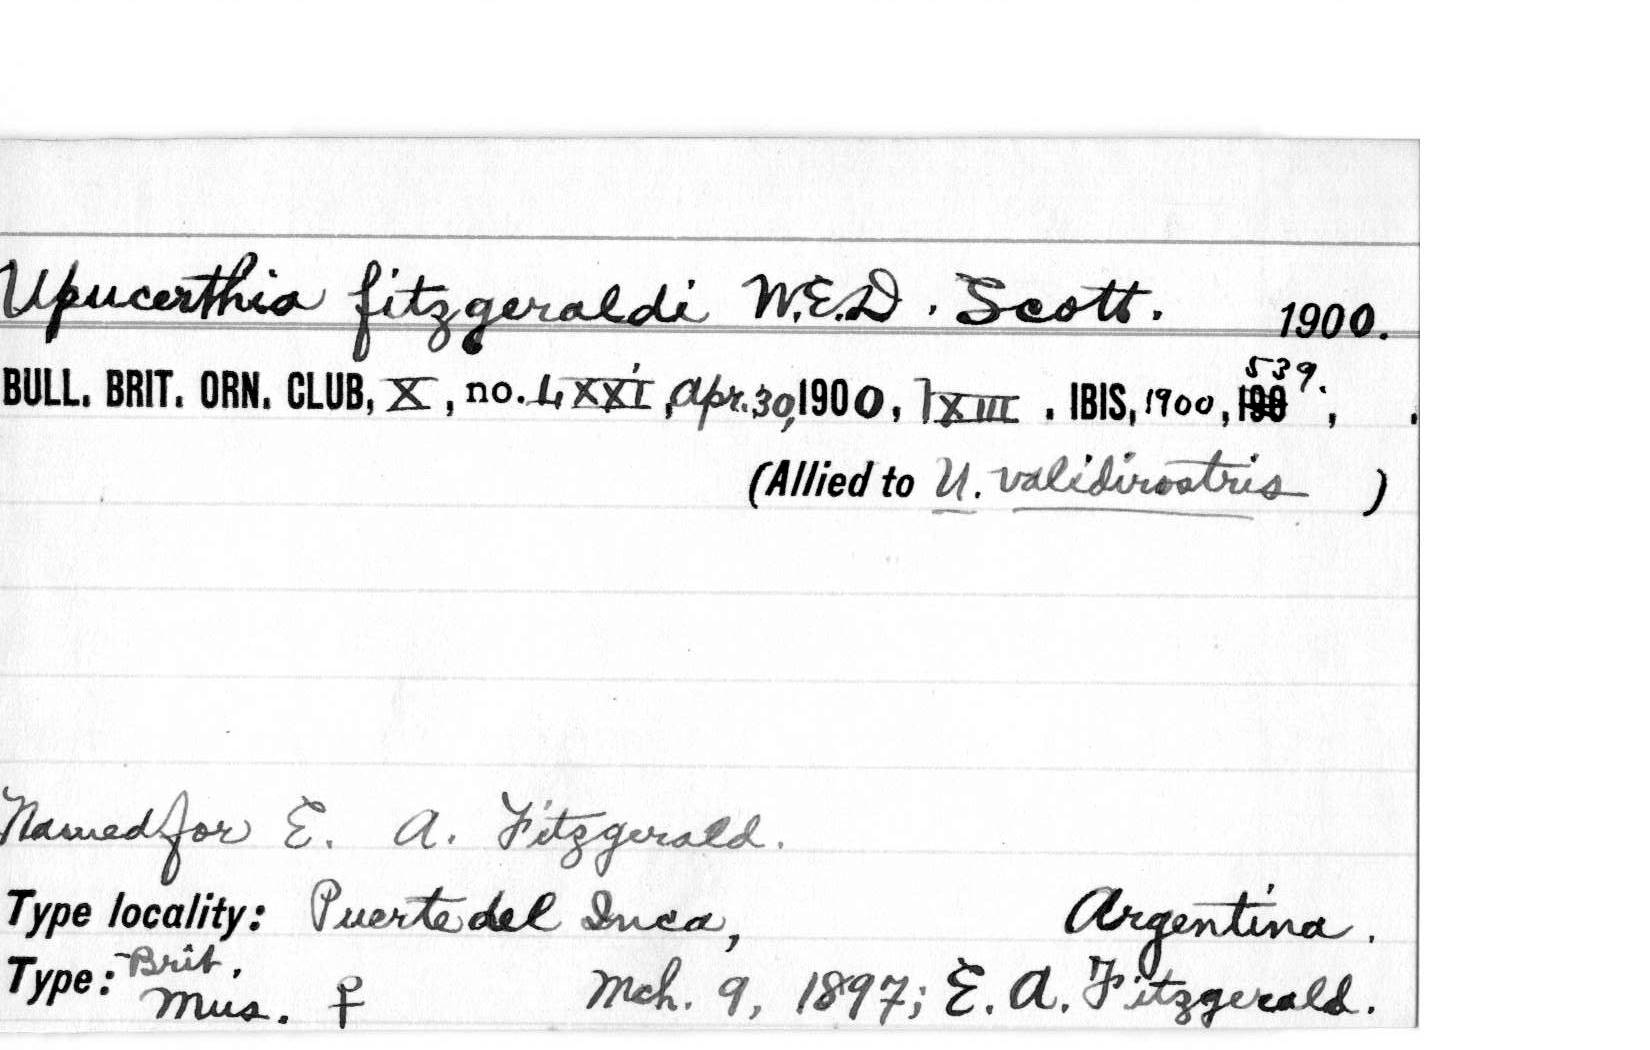 Upucerthia fitzgeraldi W.E.D. Scott. 1900.
539.
BULL. BRIT. ORN. CLUB, X, no. LXXI, Apr. 30, 1900, lxiii . IBIS, 1900, 190 , .
(Allied to U. validirostris )
Named for E. A. Fitzgerald.
Type locality: Puerte del Inca, Argentina.
Type: Brit. Mus. ♀ Mch. 9, 1897; E. A. Fitzgerald.